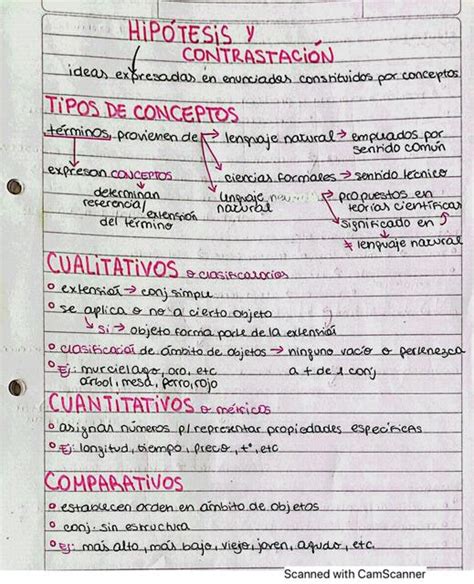 HIPÓTESIS Y
CONTRASTACIÓN
ideas expresadas en enunciados constituidos por conceptos
TIPOS DE CONCEPTOS
términos, provienen de → lenguaje natural → empleados por
sentido común
expresan CONCEPTOS
ciencias formales → sentido técnico
determinan
referencia/
extensión
del término
lenguaje
natural
propuestos en
teorías científicas
significado en
≠ lenguaje natural
CUALITATIVOS o clasificatorios
extensión → conj simple
se aplica o no a cierto objeto
si → objeto forma parte de la extensión
clasificación de ámbito de objetos → ninguno vacío o pertenezca
a + de 1 conj
Ej: murcielago, oro, etc
árbol, mesa, perro, rojo
CUANTITATIVOS o métricos
asignan números p/representar propiedades específicas
Ej: longitud, tiempo, precio, t°, etc
COMPARATIVOS
establecen orden en ámbito de objetos
conj. sin estructura
Ej: más alto, más bajo, viejo, joven, agudo, etc.
Scanned with CamScanner